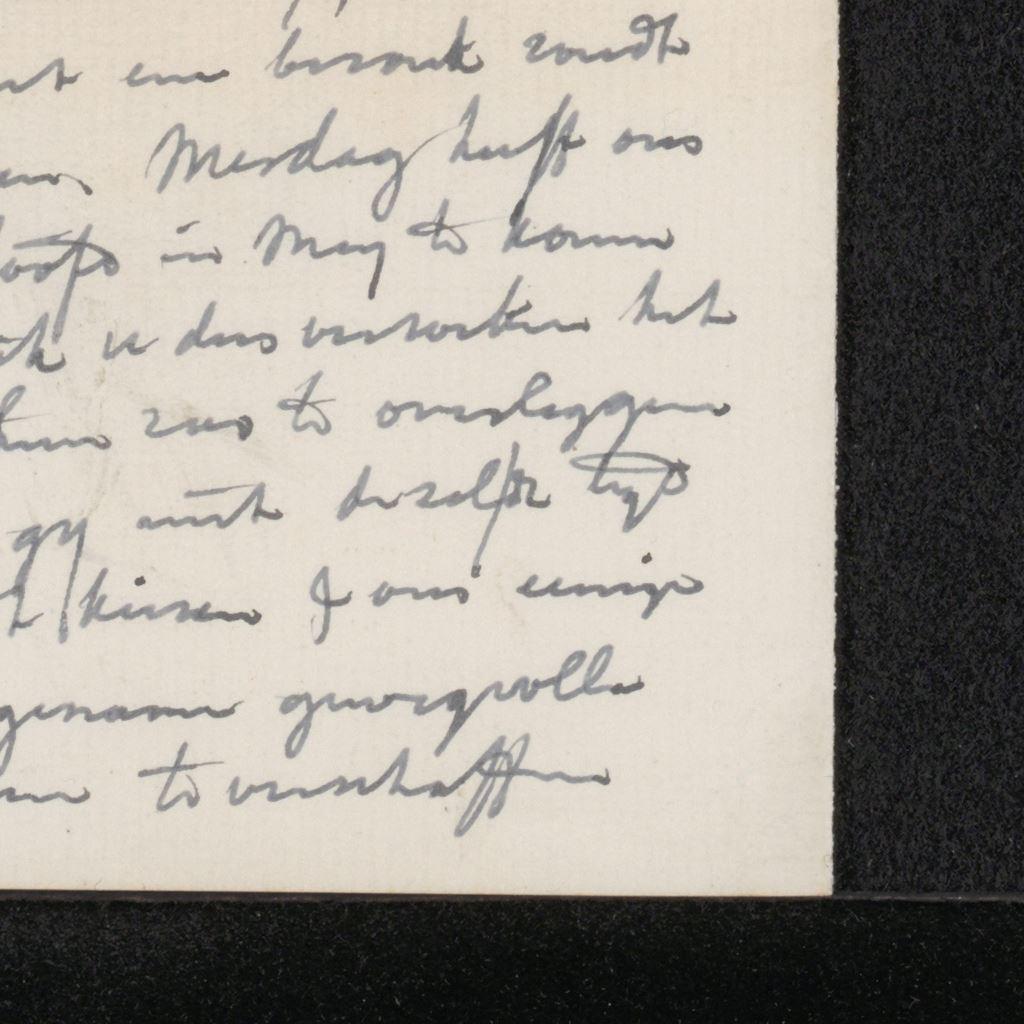 een bezoek zoudt
Mesdag heeft ons
in Mey te komen
u dus verzoeken het
zoo te overleggen
gy niet dezelfde tyd
kiezen & ons eenige
genaam genoegvolle
te verschaffen